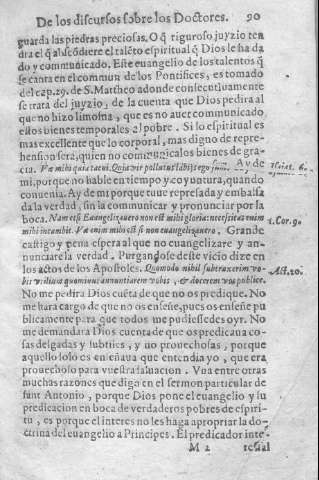 De los discursos sobre los Doctores. 90
guarda las piedras preciosas. O q̃ riguroso juyzio ten
dra el q̃ abscõdiere el talẽto espiritual q̃ Dios le ha da
do y communicado. Este euangelio de los talentos q̃
se canta en el commun de los Pontifices, es tomado
del cap. 29. de S. Mattheo adonde consecutiuamente
se trata del juyzio, de la cuenta que Dios pedira al
que no hizo limosna, que es no auer communicado
estos bienes temporales al pobre. Si lo espiritual es
mas excellente que lo corporal, mas digno de repre-
hension sera, quien no communicale bienes de gra-
cia. Væ mihi quia tacui. Quia vir pollutus labijs ego sum. Ay de
mi, porque no hable en tiempo y coyuntura, quando
conuenia. Ay de mi porque tuue represada y embalsa
da la verdad, sin la communicar y pronunciar por la
boca. Nam etsi Euangelizauero non est mihi gloria: necessitas enim
mihi incumbit. Væ enim mihi est si non euangelizauero. Grande
castigo y pena espera al que no euangelizare y an-
nunciare la verdad. Purgandose deste vicio dize en
los actos de los Apostoles. Quomodo nihil subtraxerim vo-
bis vtilium quominus annuntiarem vobis, & docerem vos publice.
No me pedira Dios cuẽta de que no os predique. No
me hara cargo de que no os enseñe, pues os enseñe pu
blicamente para que todos me pudiessedes oyr. No
me demandara Dios cuenta de que os predicaua co-
sas delgadas y subtiles, y no prouechosas, porque
aquello solo os enseñaua que entendia yo, que era
prouechoso para vuestra saluacion. Vna entre otras
muchas razones que digo en el sermon particular de
sant Antonio, porque Dios pone el euangelio y su
predicacion en boca de verdaderos pobres de espiri-
tu, es porque el interes no les haga apropriar la do-
ctrina del euangelio a Principes. El predicador inte-
M 2 ressal
Isai æ. 6.
1. Cor. 9.
Act. 20.